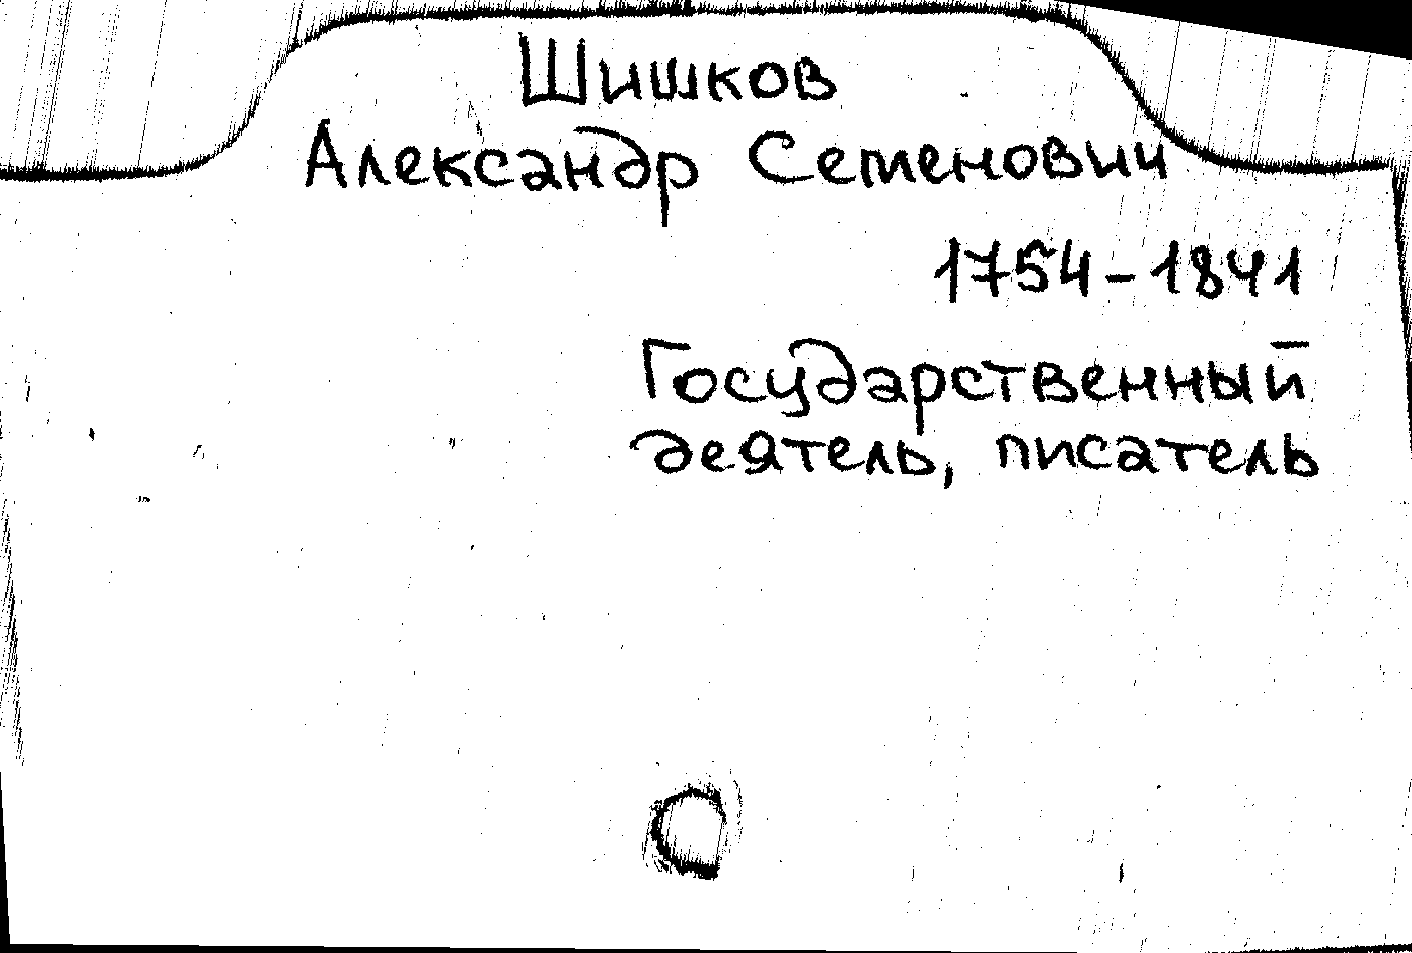 Шишков
Александр Семенович
1754-1841
Государственный
деятель, писатель